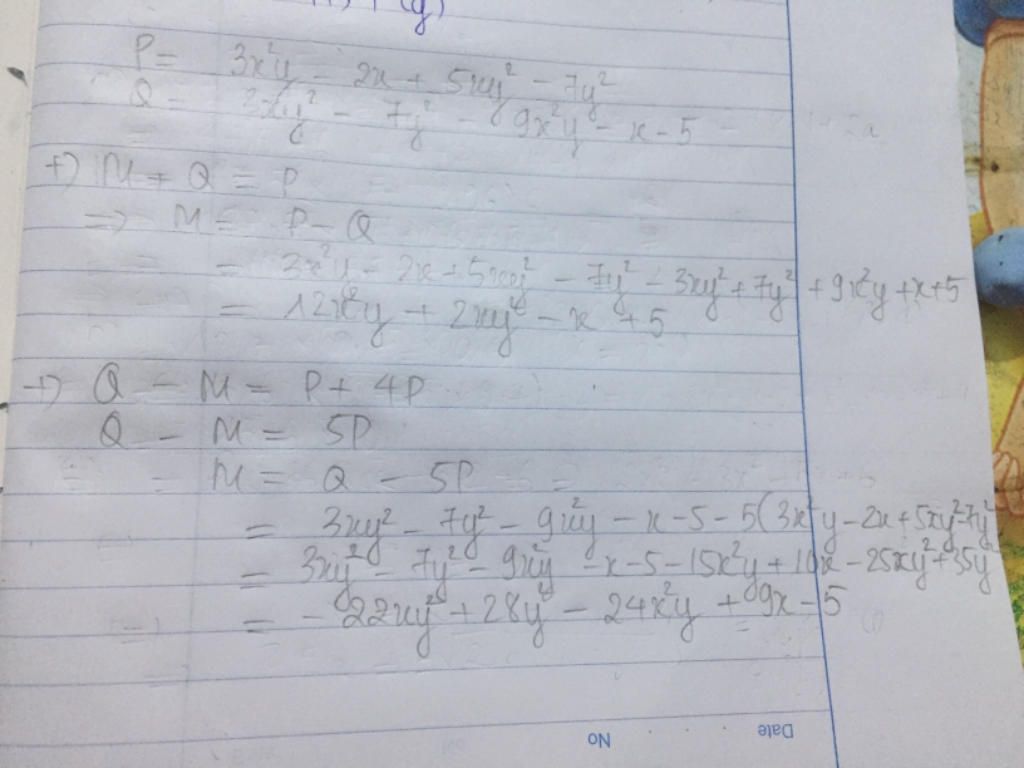 P = 3x²y - 2x + 5xy² - 7y²
Q = 3xy² - 7y² - 9x²y - x - 5
+) M + Q = P
=> M = P - Q
= 3x²y - 2x + 5xy² - 7y² - 3xy² + 7y² + 9x²y + x + 5
= 12x²y + 2xy² - x + 5
+) Q - M = P + 4P
Q - M = 5P
M = Q - 5P
= 3xy² - 7y² - 9x²y - x - 5 - 5(3x²y - 2x + 5xy² - 7y²
= 3xy² - 7y² - 9x²y - x - 5 - 15x²y + 10x - 25xy² + 35y²
= - 22xy² + 28y² - 24x²y + 9x - 5
No Date